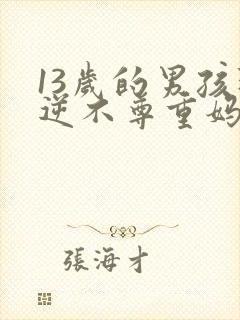 13歲的男孩
逆不尊重媽
張海才